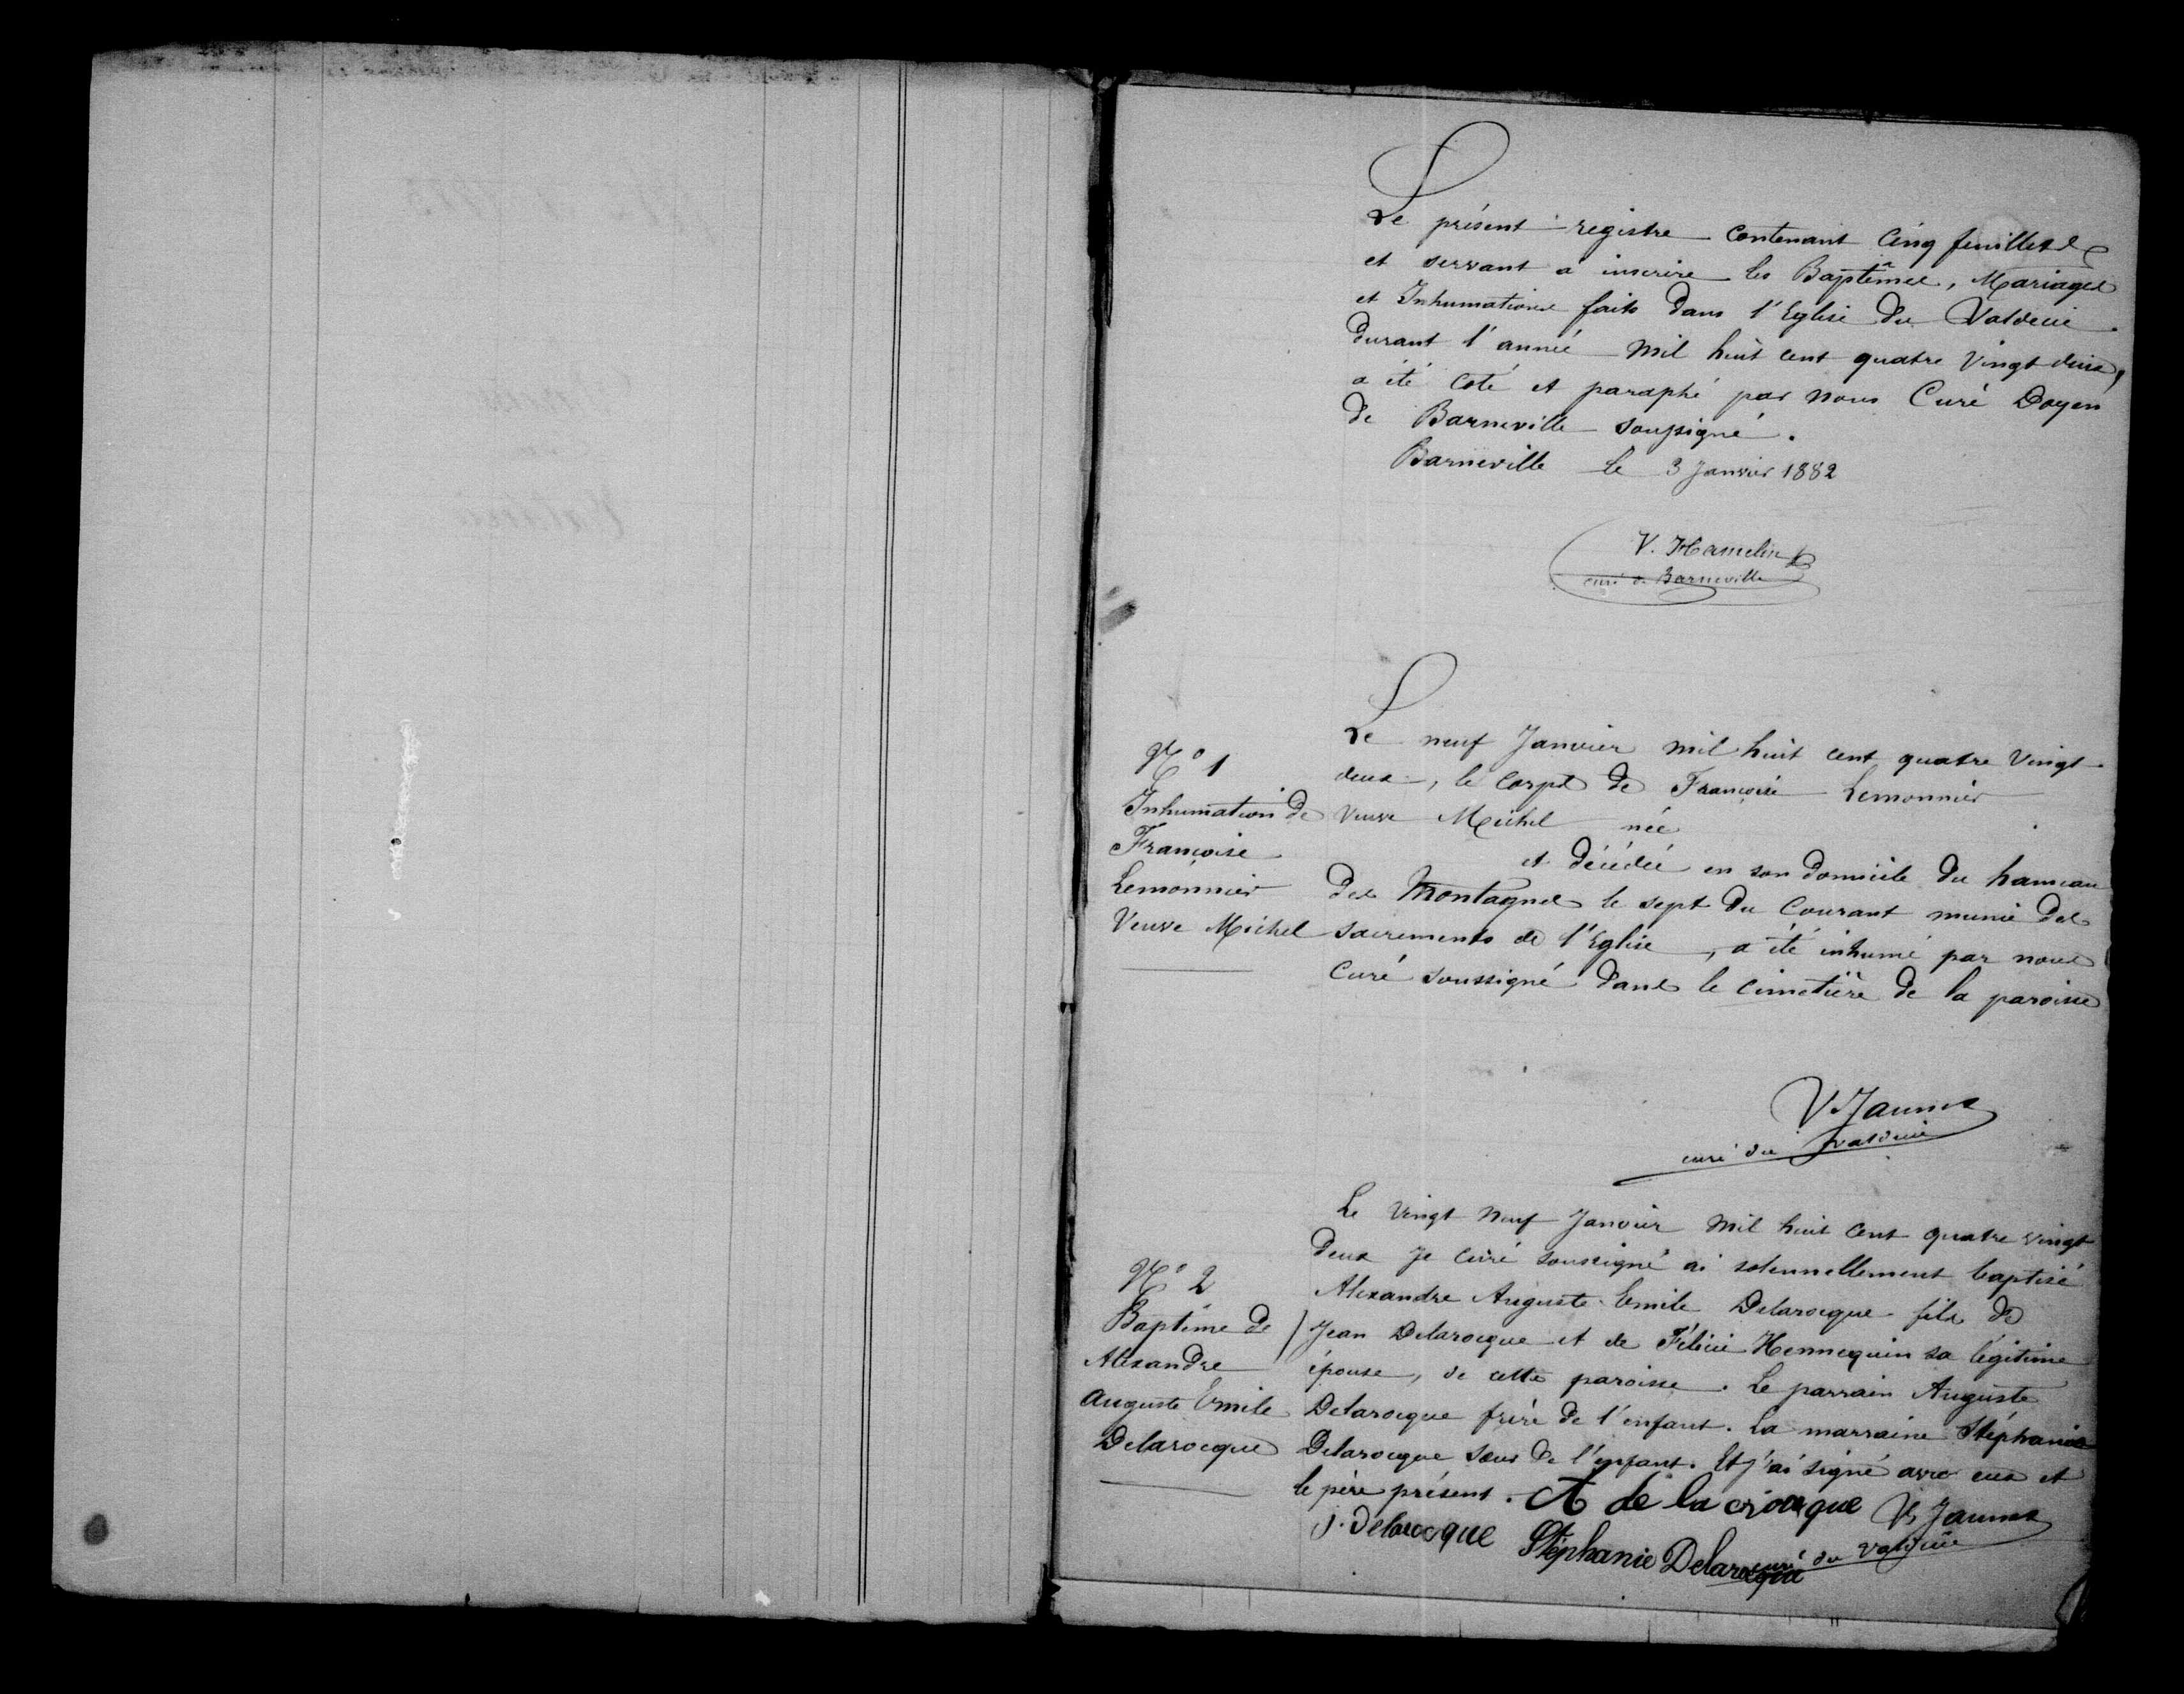 Le présent registre contenant cinq feuillets
et servant à inscrire les Baptêmes, Mariages
et Inhumations faits dans l'Eglise du Valdecie
durant l'année mil huit cent quatre vingt deux,
a été coté et paraphé par nous Curé Doyen
de Barneville soussigné.
Barneville le 3 Janvier 1882
V. Hamelin
curé de Barneville
N° 1
Inhumation de
Françoise
Lemonnier
Veuve Michel
Le neuf Janvier mil huit cent quatre vingt
deux, le corps de Françoise Lemonnier
veuve Michel née
et décédée en son domicile du hameau
des Montagnes le sept du courant munie des
sacrements de l'Eglise, a été inhumé par nous
Curé soussigné dans le cimetière de la paroisse
V. Jaunet
curé du Valdecie
N° 2
Baptême de
Alexandre
Auguste Emile
Delarocque
Le vingt neuf Janvier mil huit cent quatre vingt
deux je curé soussigné ai solennellement baptisé
Alexandre Auguste Emile Delarocque fils de
Jean Delarocque et de Félicie Hennequin sa légitime
épouse, de cette paroisse. Le parrain Auguste
Delarocque frère de l'enfant. La marraine Stéphanie
Delarocque sœur de l'enfant. Et j'ai signé avec eux et
le père présent. A de la crouque V. Jaunet
J. Delarocque Stéphanie Delarocque curé du Valdecie